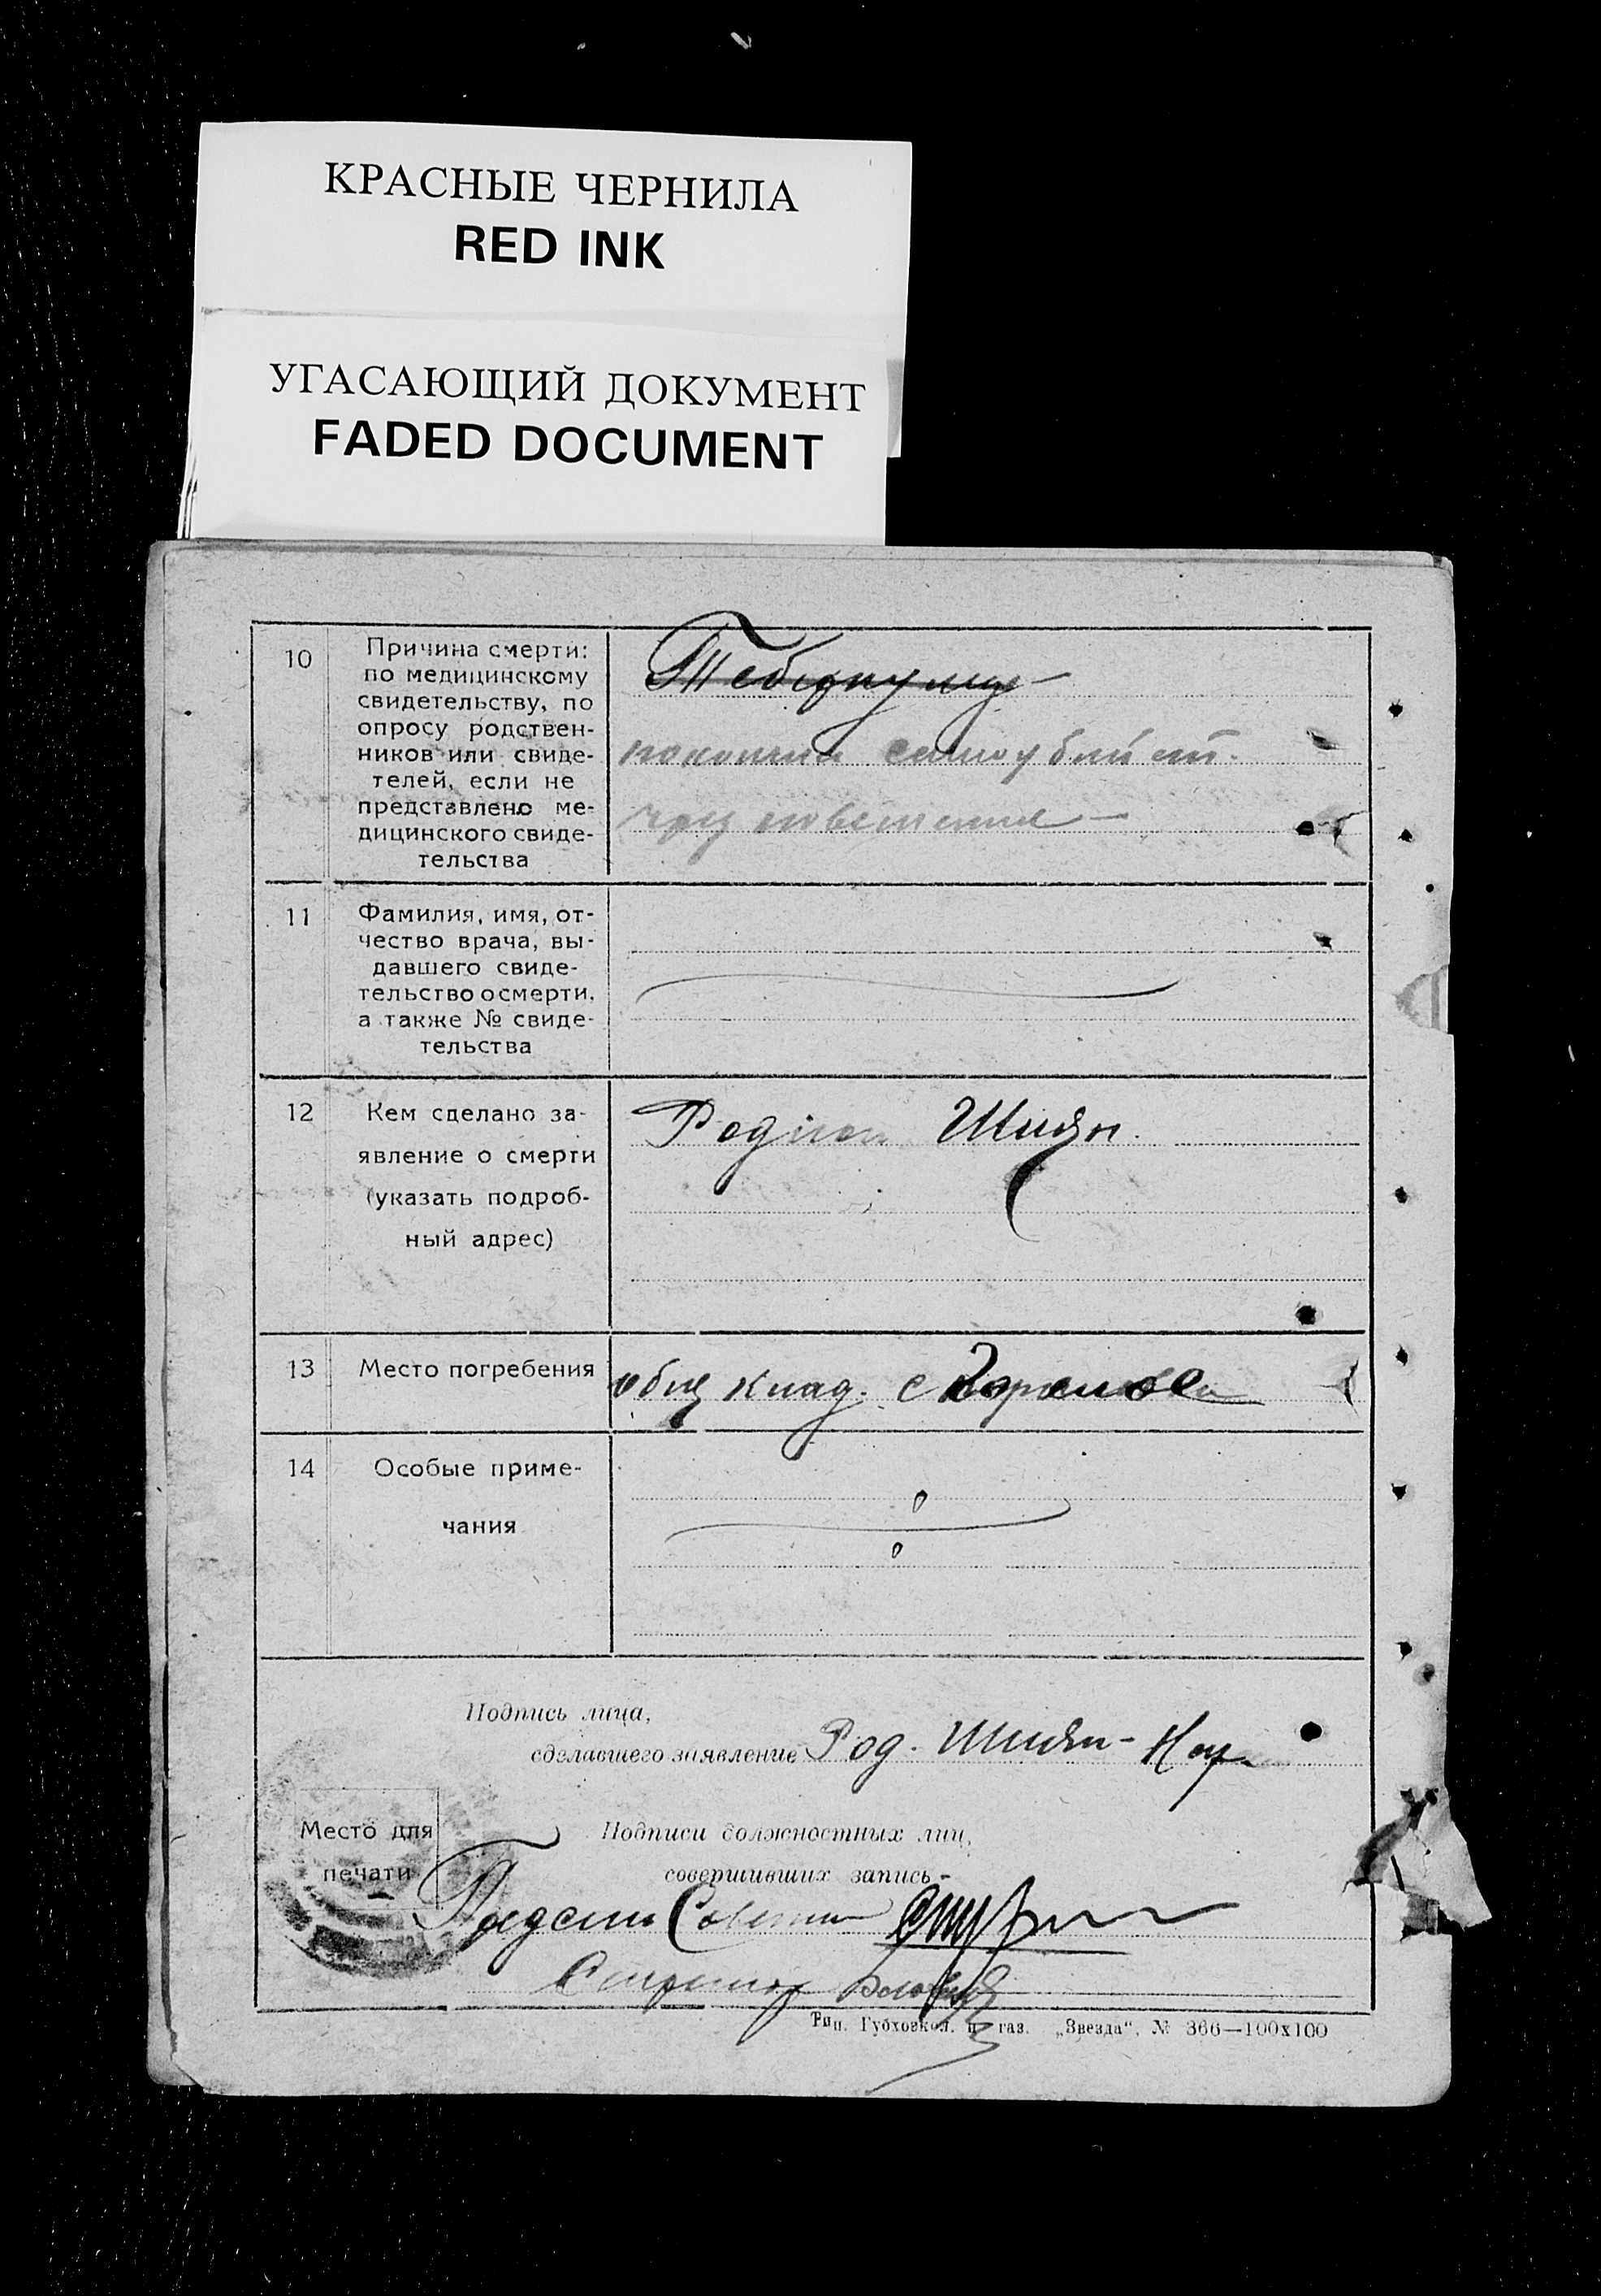 КРАСНЫЕ ЧЕРНИЛА
RED INK
УГАСАЮЩИЙ ДОКУМЕНТ
FADED DOCUMENT
10
Причина смерти:
по медицинскому
свидетельству, по
опросу родствен-
ников или свиде-
телей, если не
представлено ме-
дицинского свиде-
тельства
покончил самоубийст.
11
Фамилия, имя, от-
чество врача, вы-
давшего свиде-
тельство о смерти,
а также № свиде-
тельства
12
Кем сделано за-
явление о смерти
(указать подроб-
ный адрес)
Родион Шиян
13
Место погребения
общ клад. с
14
Особые приме-
чания
Подпись лица,
сделавшего заявление Род. Шиян-
Место для
печати
Подписи должностных лиц,
совершивших запись
Предсш Совета
Секретар
Тип. Губховкол. п газ. „Звезда“, № 366—100х100